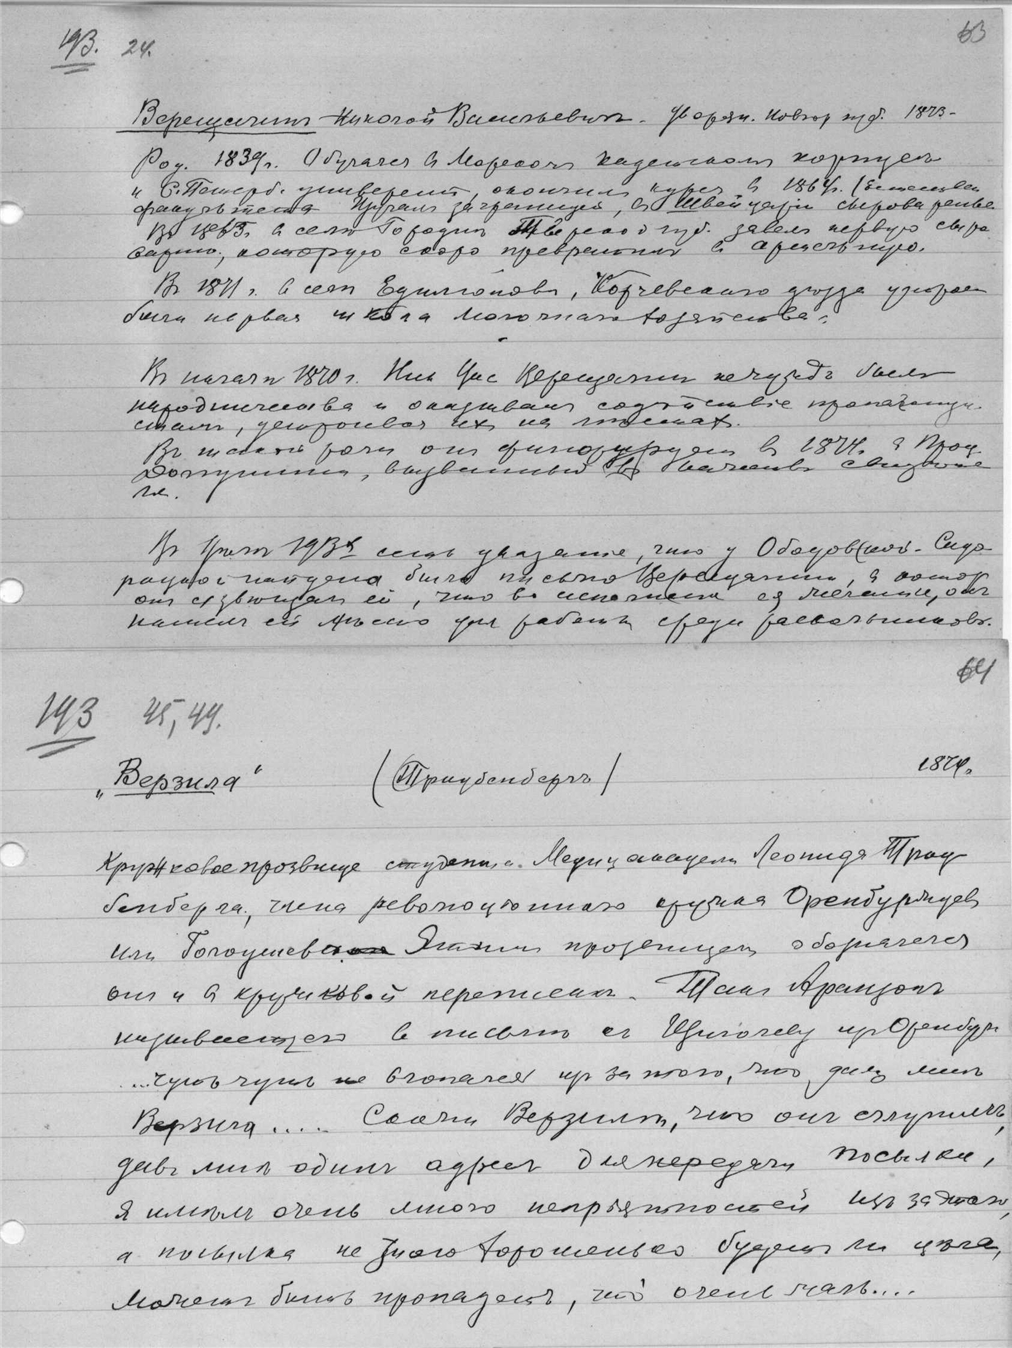 193. 24. 63
Верещагинъ Николай Васильевичъ. Дворян. Новгор губ. 1873.
Род. 1839г. Обучался в Морскомъ кадетскомъ корпусѣ
и С.Петерб. университ, окончилъ курсъ в 1864г. (Естествен
факультета Изучалъ заграницей, въ Швейцаріи сыроваренье
Въ 1865г. в селѣ Городнѣ Тверской губ. завелъ первую сыро
варню, которую скоро превратилъ в артельную.
Въ 1871 г. в селѣ Едимоновѣ, Корчевского уѣзда устроен
была первая школа молочнаго хозяйства.
Въ началѣ 1870 г. Ник Вас Верещагинъ не чуждъ былъ
народничества и оказывалъ содѣйствіе пропаганди
стамъ, устроивая ихъ на мѣстахъ.
Въ такой роли он фигурируетъ в 1874г. в Проц.
Долгушина, вызванный в качествѣ свидѣте
ля.
Въ 193х есть указание, что у Ободовской - Сидо
рацкой найдена была письмо Верещагина, в котор
он извѣщалъ ей, что во исполнение ея желание, онъ
нашелъ ей мѣсто для работы среди раскольниковъ.
64
193 45, 49.
„Верзила“ (Траубенбергъ) 1874г.
Кружковое прозвище студента Медиц академіи Леонида Трау
бенберга, члена революціоннаго кружка Оренбуржцев
или Голоушева Этимъ прозвищем обозначался
он и в кружковой перепискѣ. Такъ Аронзонъ
называетъ его в письмѣ къ Щиголеву изъ Оренбурга
...чуть чуть не влопался из за того, что далъ мнѣ
Верзила.... Скажи Верзилѣ, что онъ сглупилъ,
давъ мнѣ одинъ адресъ для передачи посылки,
я имѣлъ очень много непріятностей изъ за того,
а посылка не знаю хорошенько будетъ ли цѣла,
можетъ быть пропадетъ, что очень жаль....